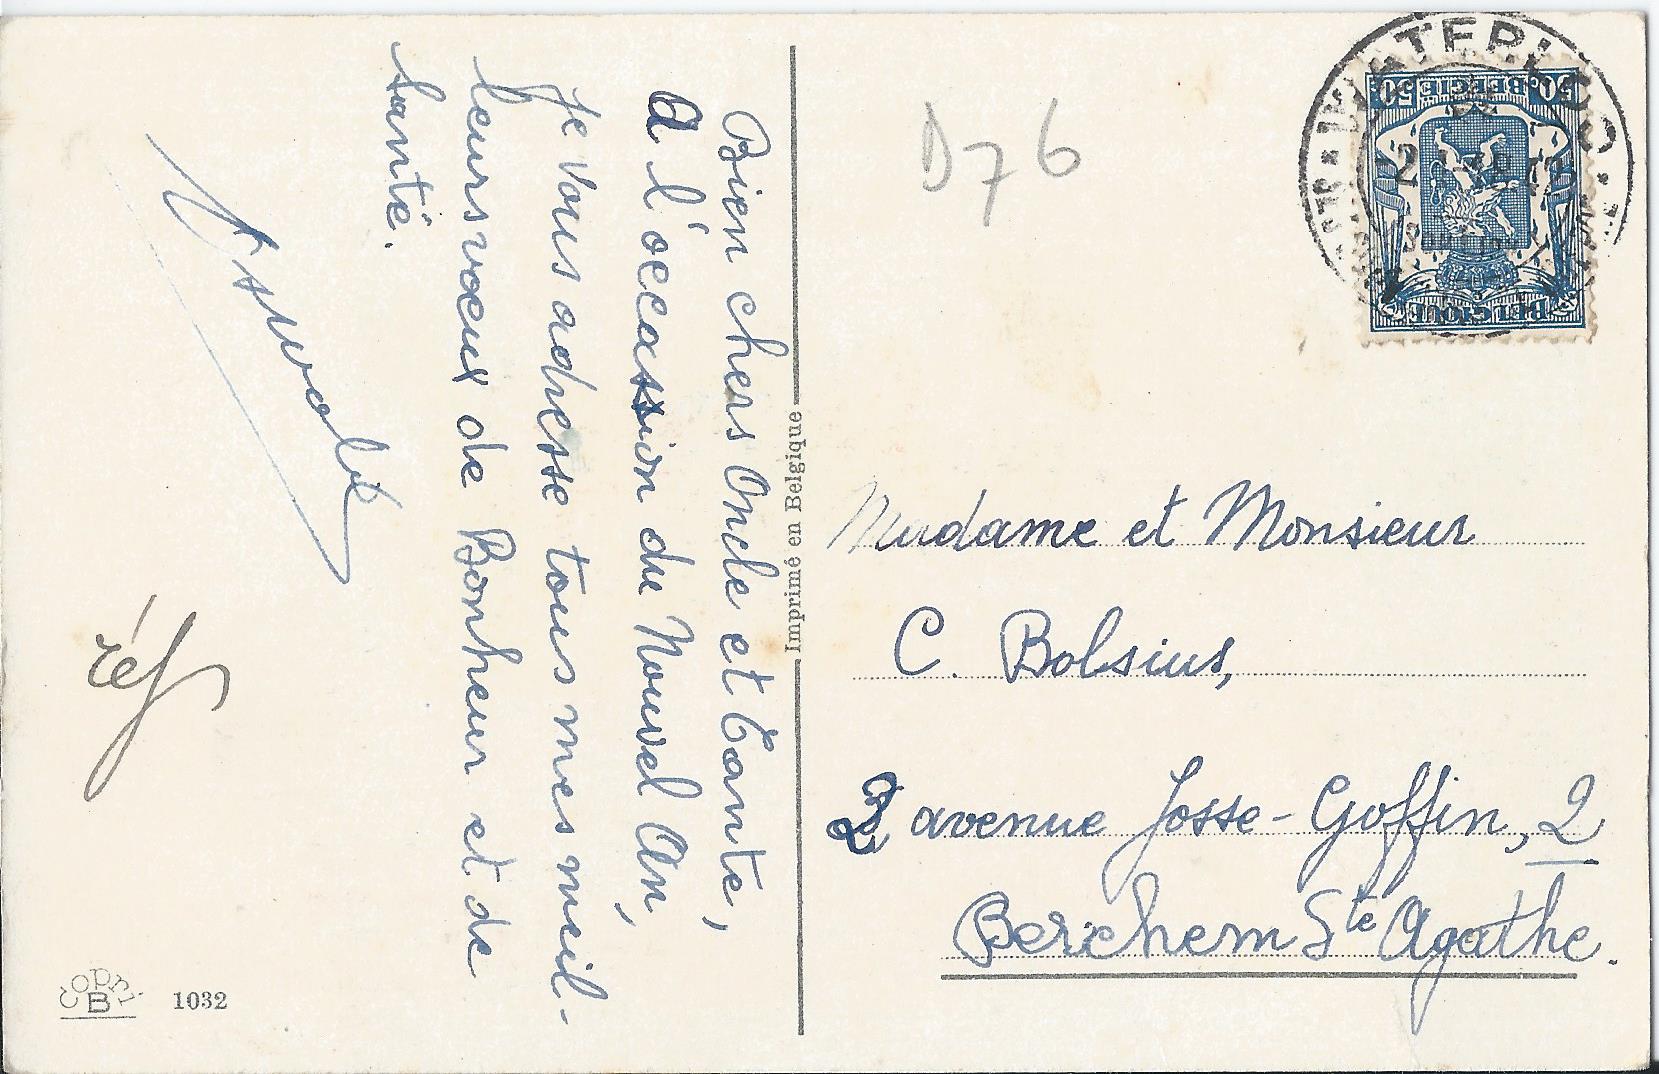 Bien chers Oncle et Tante,
A l'occasion du Nouvel An,
je vous adresse tous mes meil-
leurs vœux de Bonheur et de
santé.
réf
Copri
B
1032
Imprimé en Belgique
D76
WATERLOO
50c BELGIË 50c
BELGIQUE
Madame et Monsieur
C. Bolsius,
2, avenue Josse-Goffin, 2
Berchem Ste Agathe.